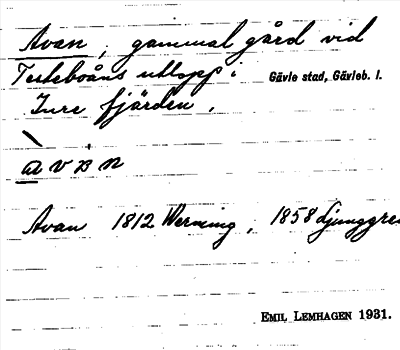 Avan, gammal gård vid
Testeboåns utlopp i Gävle stad, Gävleb. l.
Inre fjärden.
Avan 1812 Werning, 1858 Ljunggre
EMIL LEMHAGEN 1931.